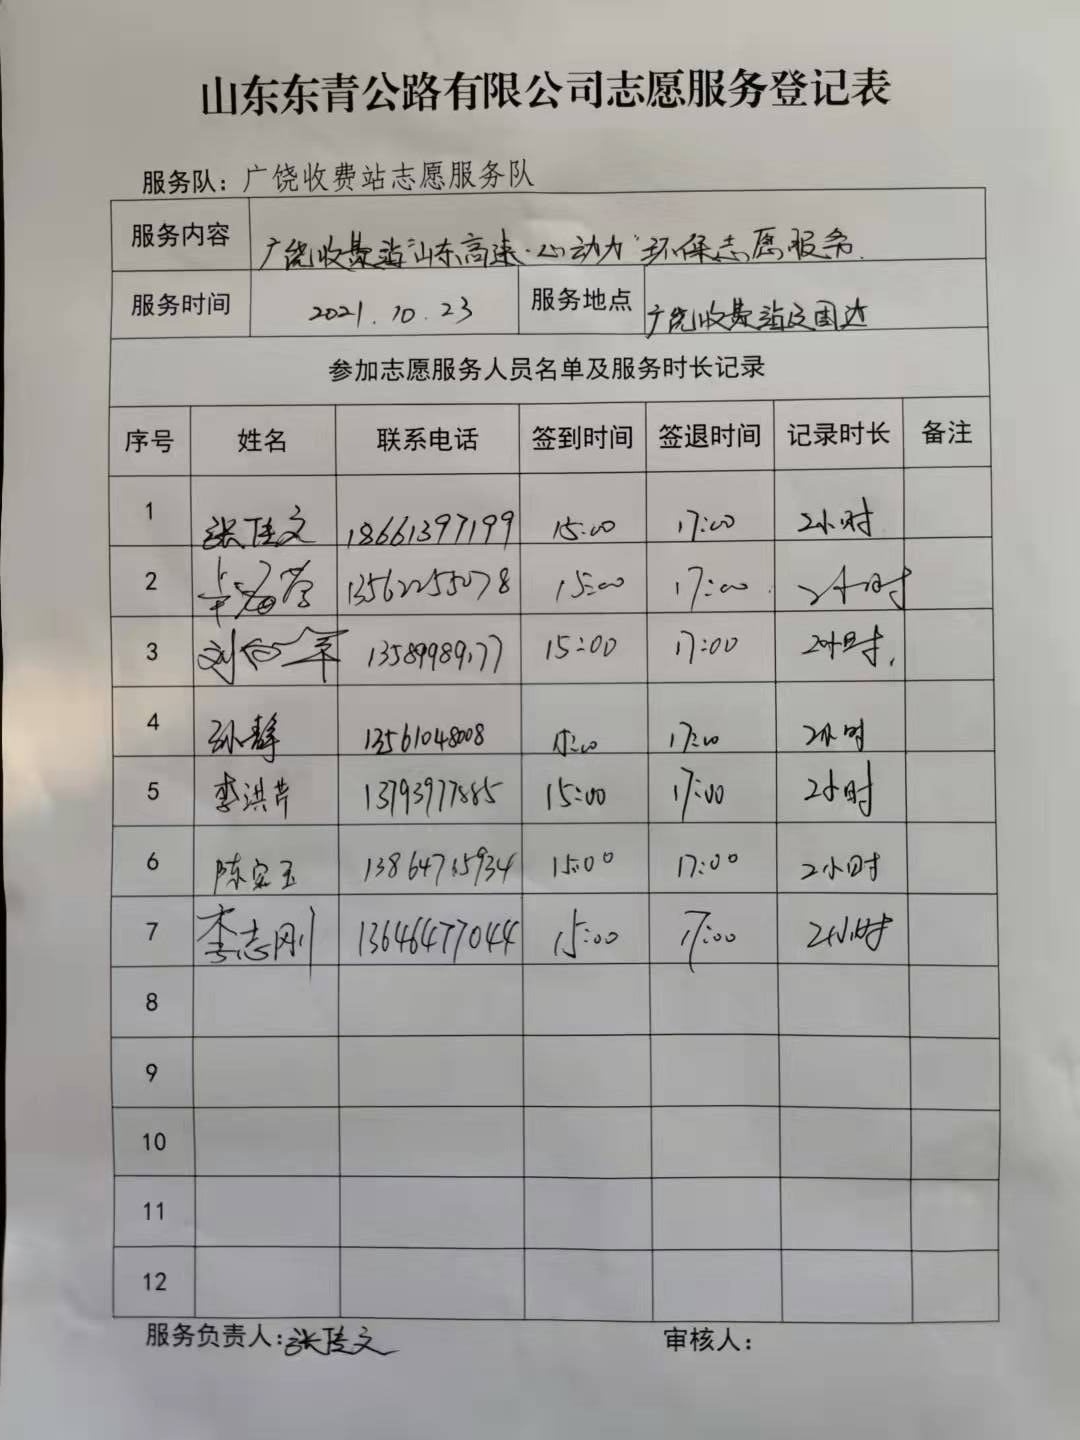 山东东青公路有限公司志愿服务登记表
服务队：广饶收费站志愿服务队
服务内容 广饶收费站"山东高速·心动力"环保志愿服务.
服务时间 2021.10.23 服务地点 广饶收费站及周边
参加志愿服务人员名单及服务时长记录
序号 姓名 联系电话 签到时间 签退时间 记录时长 备注
1 张佳文 18661397199 15:00 17:00 2小时
2 13562255078 15:00 17:00 2小时
3 刘 军 13589989177 15:00 17:00 2小时.
4 孙静 13561048008 15:00 17:00 2小时
5 李洪芹 13793977885 15:00 17:00 2小时
6 陈宝玉 13864715934 15:00 17:00 2小时
7 李志刚 13646477044 15:00 17:00 2小时
8
9
10
11
12
服务负责人:张佳文 审核人: